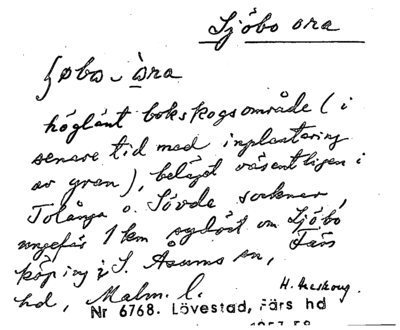 Sjöbo ora
høglänt bokskogsområde (i
senare tid med inplantering
av gran), beläget väsentligen i
Tolånga o. Sövde socknar,
ungefär 1 km sydöst om Sjöbo
köping i S. Åsums sn, Färs
hd, Malm. l.
Nr 6768. Lövestad, Färs hd